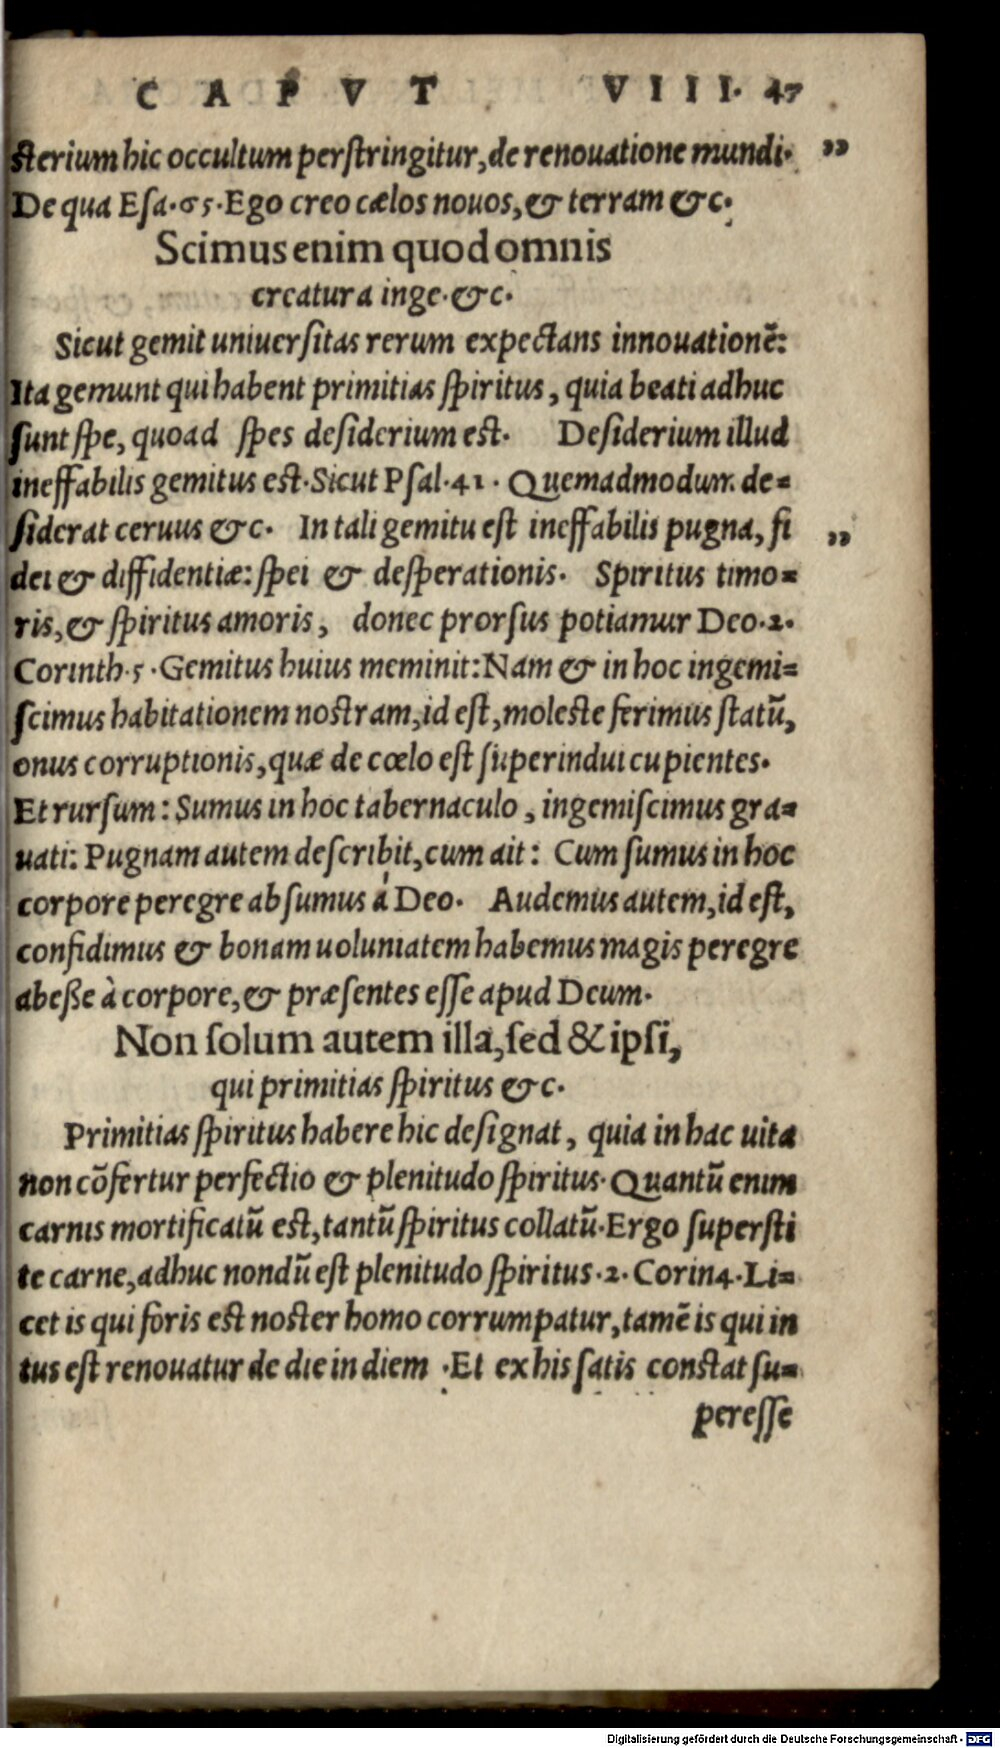 CAPVT VIII. 47
sterium hic occultum perstringitur, de renouatione mundi. ”
De qua Esa.65. Ego creo cælos nouos, & terram &c.
Scimus enim quod omnis
creatura inge. &c.
Sicut gemit uniuersitas rerum expectans innouationē:
Ita gemunt qui habent primitias spiritus, quia beati adhuc
sunt spe, quoad spes desiderium est. Desiderium illud
ineffabilis gemitus est. Sicut Psal.41. Quemadmodum de=
siderat ceruus &c. In tali gemitu est ineffabilis pugna, fi ”
dei & diffidentiæ: spei & desperationis. Spiritus timo=
ris, & spiritus amoris, donec prorsus potiamur Deo.2.
Corinth.5. Gemitus huius meminit: Nam & in hoc ingemi=
scimus habitationem nostram, id est, moleste ferimus statū,
onus corruptionis, quæ de cœlo est superindui cupientes.
Et rursum: Sumus in hoc tabernaculo, ingemiscimus gra=
uati: Pugnam autem describit, cum ait: Cum sumus in hoc
corpore peregre absumus à Deo. Audemus autem, id est,
confidimus & bonam uoluntatem habemus magis peregre
abeße à corpore, & præsentes esse apud Deum.
Non solum autem illa, sed & ipsi,
qui primitias spiritus &c.
Primitias spiritus habere hic designat, quia in hac uita
non cōfertur perfectio & plenitudo spiritus. Quantū enim
carnis mortificatū est, tantū spiritus collatū. Ergo supersti
te carne, adhuc nondū est plenitudo spiritus.2. Corin4. Li=
cet is qui foris est noster homo corrumpatur, tamē is qui in
tus est renouatur de die in diem. Et ex his satis constat su=
peresse
Digitalisierung gefördert durch die Deutsche Forschungsgemeinschaft - DFG